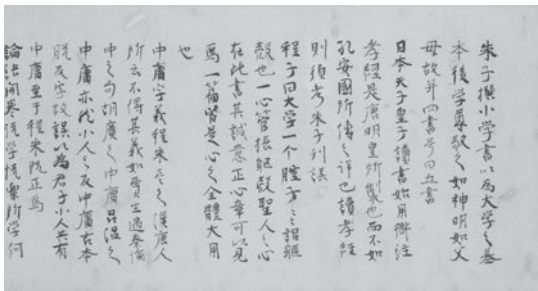 朱子撰小学書以為大学之基
本後学尊敬之如神明如父
母故并四書号曰五書
日本天子皇子讀書始用御注
孝經是唐明皇所製也而不如
孔安國所傳之詳也讀孝經
則須考朱子刊誤
程子曰大学一个腔子々謂軀
殻也一心管摂軀殻聖人之心
在此書其誠意正心章可以見
焉一篇皆是心之全體大用
也
中庸字義程朱尽之漢唐人
所云不得其義如賈生過秦論
中之句胡廣之中庸品温之
中庸亦然小人之反中庸古本
脱反字故誤以為君子小人共有
中庸至于程朱既正焉
論語開巻説学悦樂所学何